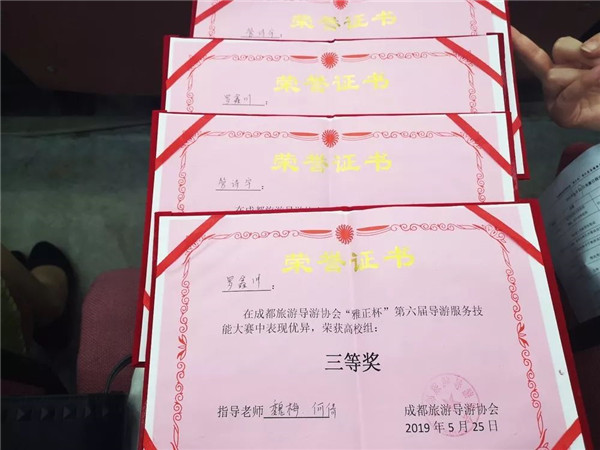 荣誉证书
荣誉证书
罗鑫川：
荣誉证书
荣誉证书
罗鑫川：
在成都旅游导游协会“雅正杯”第六届导游服务技
能大赛中表现优异，荣获高校组：
三等奖
指导老师 魏梅 何倩
成都旅游导游协会
2019年5月25日